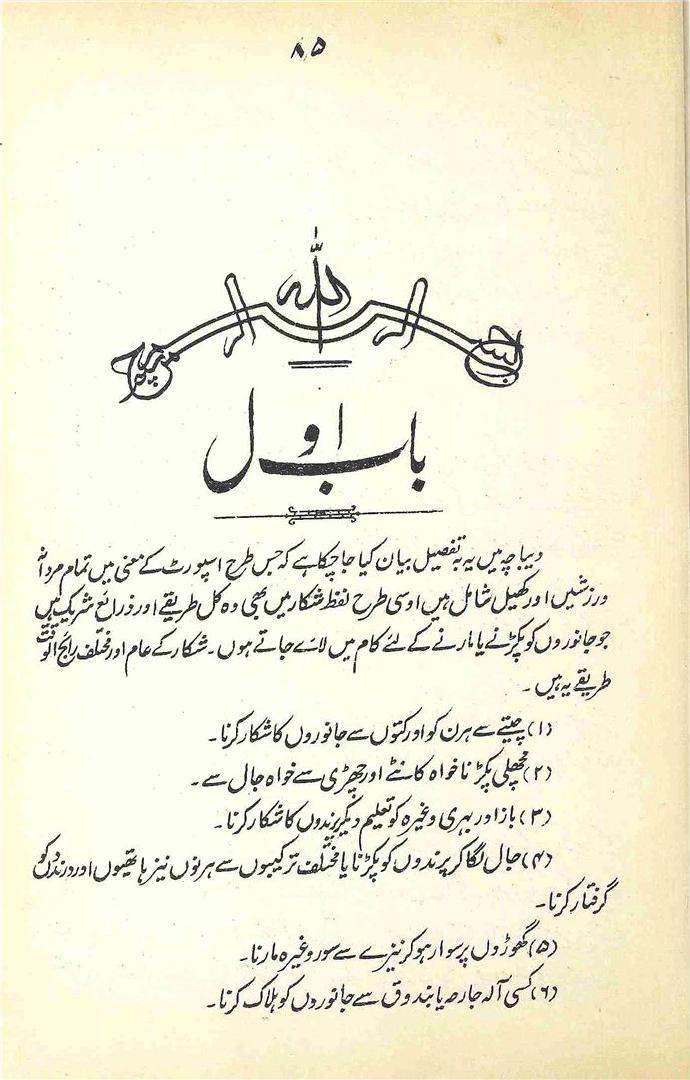 ۸۵
بسم الله الرحمن الرحیم
باب اول
دیباچہ میں یہ بہ تفصیل بیان کیا جا چکا ہے کہ جس طرح اسپورٹ کے معنی میں تمام مردانہ
ورزشیں اور کھیل شامل ہیں اوسی طرح لفظ شکار میں بھی وہ کل طریقے اور ذرایع شریک ہیں
جو جانوروں کو پکڑنے یا مارنے کے لئے کام میں لائے جاتے ہوں۔ شکار کے عام اور مختلف رایج الوقت
طریقے یہ ہیں۔
(۱) چیتے سے ہرن کو اور کتوں سے جانوروں کا شکار کرنا۔
(۲) مچھلی پکڑنا خواہ کانٹے اور چھڑی سے خواہ جال سے۔
(۳) باز اور بہری وغیرہ کو تعلیم دیکر پرندوں کا شکار کرنا۔
(۴) جال لگا کر پرندوں کو پکڑنا یا مختلف ترکیبوں سے ہرنوں نیز ہاتھیوں اور درندوں کو
گرفتار کرنا۔
(۵) گھوڑوں پر سوار ہو کر نیزے سے سور وغیرہ مارنا۔
(۶) کسی آلہ جارحہ یا بندوق سے جانوروں کو ہلاک کرنا۔